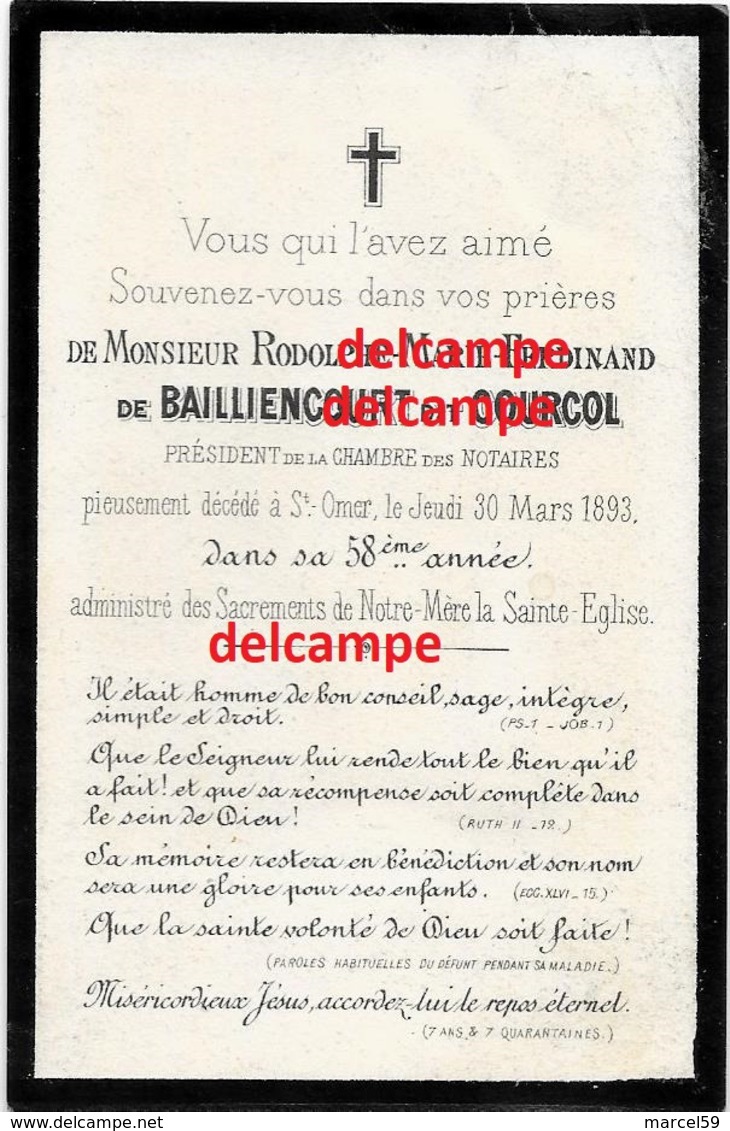 Vous qui l'avez aimé
Souvenez-vous dans vos prières
DE MONSIEUR RODOLPHE-MARIE-FERDINAND
delcampe
DE BAILLIENCOURT DIT COURCOL
delcampe
PRÉSIDENT DE LA CHAMBRE DES NOTAIRES
pieusement décédé à St.-Omer, le Jeudi 30 Mars 1893,
dans sa 58ème année.
administré des Sacrements de Notre-Mère la Sainte-Eglise.
delcampe
Il était homme de bon conseil, sage, intègre,
simple et droit. (PS_1 _ JOB_1)
Que le Seigneur lui rende tout le bien qu'il
a fait! et que sa récompense soit complète dans
le sein de Dieu! (RUTH II _12.)
Sa mémoire restera en bénédiction et son nom
sera une gloire pour ses enfants. (ECC. XLVI _ 15.)
Que la sainte volonté de Dieu soit faite!
(PAROLES HABITUELLES DU DÉFUNT PENDANT SA MALADIE.)
Miséricordieux Jésus, accordez-lui le repos éternel.
(7 ANS & 7 QUARANTAINES.)
www.delcampe.net
marcel59